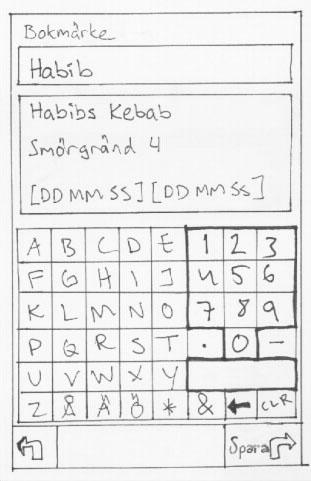 Bokmärke
Habib
Habibs Kebab
Smörgränd 4
[DD MM SS] [DD MM SS]
A B C D E 1 2 3
F G H I J 4 5 6
K L M N O 7 8 9
P Q R S T . 0 -
U V W X Y
Z Å Ä Ö * & ← CLR
Spara